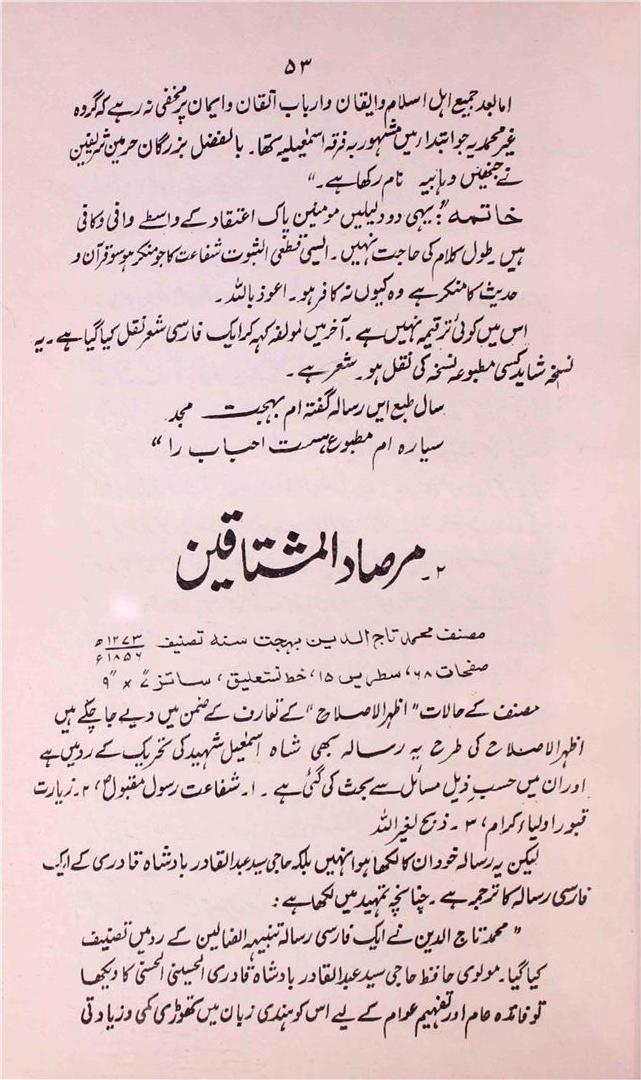 ۵۳
امابعد جمیع اہل اسلام و ایقان و ارباب اتقان و ایمان پر مخفی نہ رہے کہ گروہ
غیر محمدیہ جو ابتدا میں مشہور بہ فرقہ اسمٰعیلیہ تھا۔ بالفضل بزرگان حرمین شریفین
نے جنھیں وہابیہ نام رکھا ہے۔"
خاتمہ: "یہی دو دلیلیں مومنین پاک اعتقاد کے واسطے وافی و کافی
ہیں۔ طول کلام کی حاجت نہیں۔ ایسی قطعی الثبوت شفاعت کا جو منکر ہو سو قرآن و
حدیث کا منکر ہے وہ کیوں نہ کافر ہو۔ اعوذ باللہ۔
اس میں کوئی ترقیمہ نہیں ہے۔ آخر میں لمولفہ کہہ کر ایک فارسی شعر نقل کیا گیا ہے۔ یہ
نسخہ شاید کسی مطبوعہ نسخہ کی نقل ہو۔ شعر ہے۔
سال طبع ایں رسالہ گفتہ ام بہجت مجد
سیارہ ام مطبوع ہست احباب را "
۲۔ مرصاد المشتاقین
مصنف محمد تاج الدین بہجت سنہ تصنیف ۱۲۷۳ھ / ۱۸۵۶ء
صفحات ۶۸، سطریں ۱۵، خط نستعلیق، سائز ۷" × ۹"
مصنف کے حالات "اظہر الاصلاح" کے تعارف کے ضمن میں دیے جا چکے ہیں
اظہر الاصلاح کی طرح یہ رسالہ بھی شاہ اسمٰعیل شہید کی تحریک کے رد میں ہے
اور ان میں حسب ذیل مسائل سے بحث کی گئی ہے۔ ۱۔ شفاعت رسول مقبولؐ، ۲۔ زیارت
قبور اولیاء کرام، ۳۔ ذبح لغیر اللہ
لیکن یہ رسالہ خود ان کا لکھا ہوا نہیں بلکہ حاجی سید عبدالقادر بادشاہ قادری کے ایک
فارسی رسالہ کا ترجمہ ہے۔ چنانچہ تمہید میں لکھا ہے:
" محمد تاج الدین نے ایک فارسی رسالہ تنبیہہ الضالین کے رد میں تصنیف
کیا گیا۔ مولوی حافظ حاجی سید عبدالقادر بادشاہ قادری الحسینی الحسنی کا دیکھا
تو فائدہ عام اور تفہیم عوام کے لیے اس کو ہندی زبان میں تھوڑی کمی و زیادتی